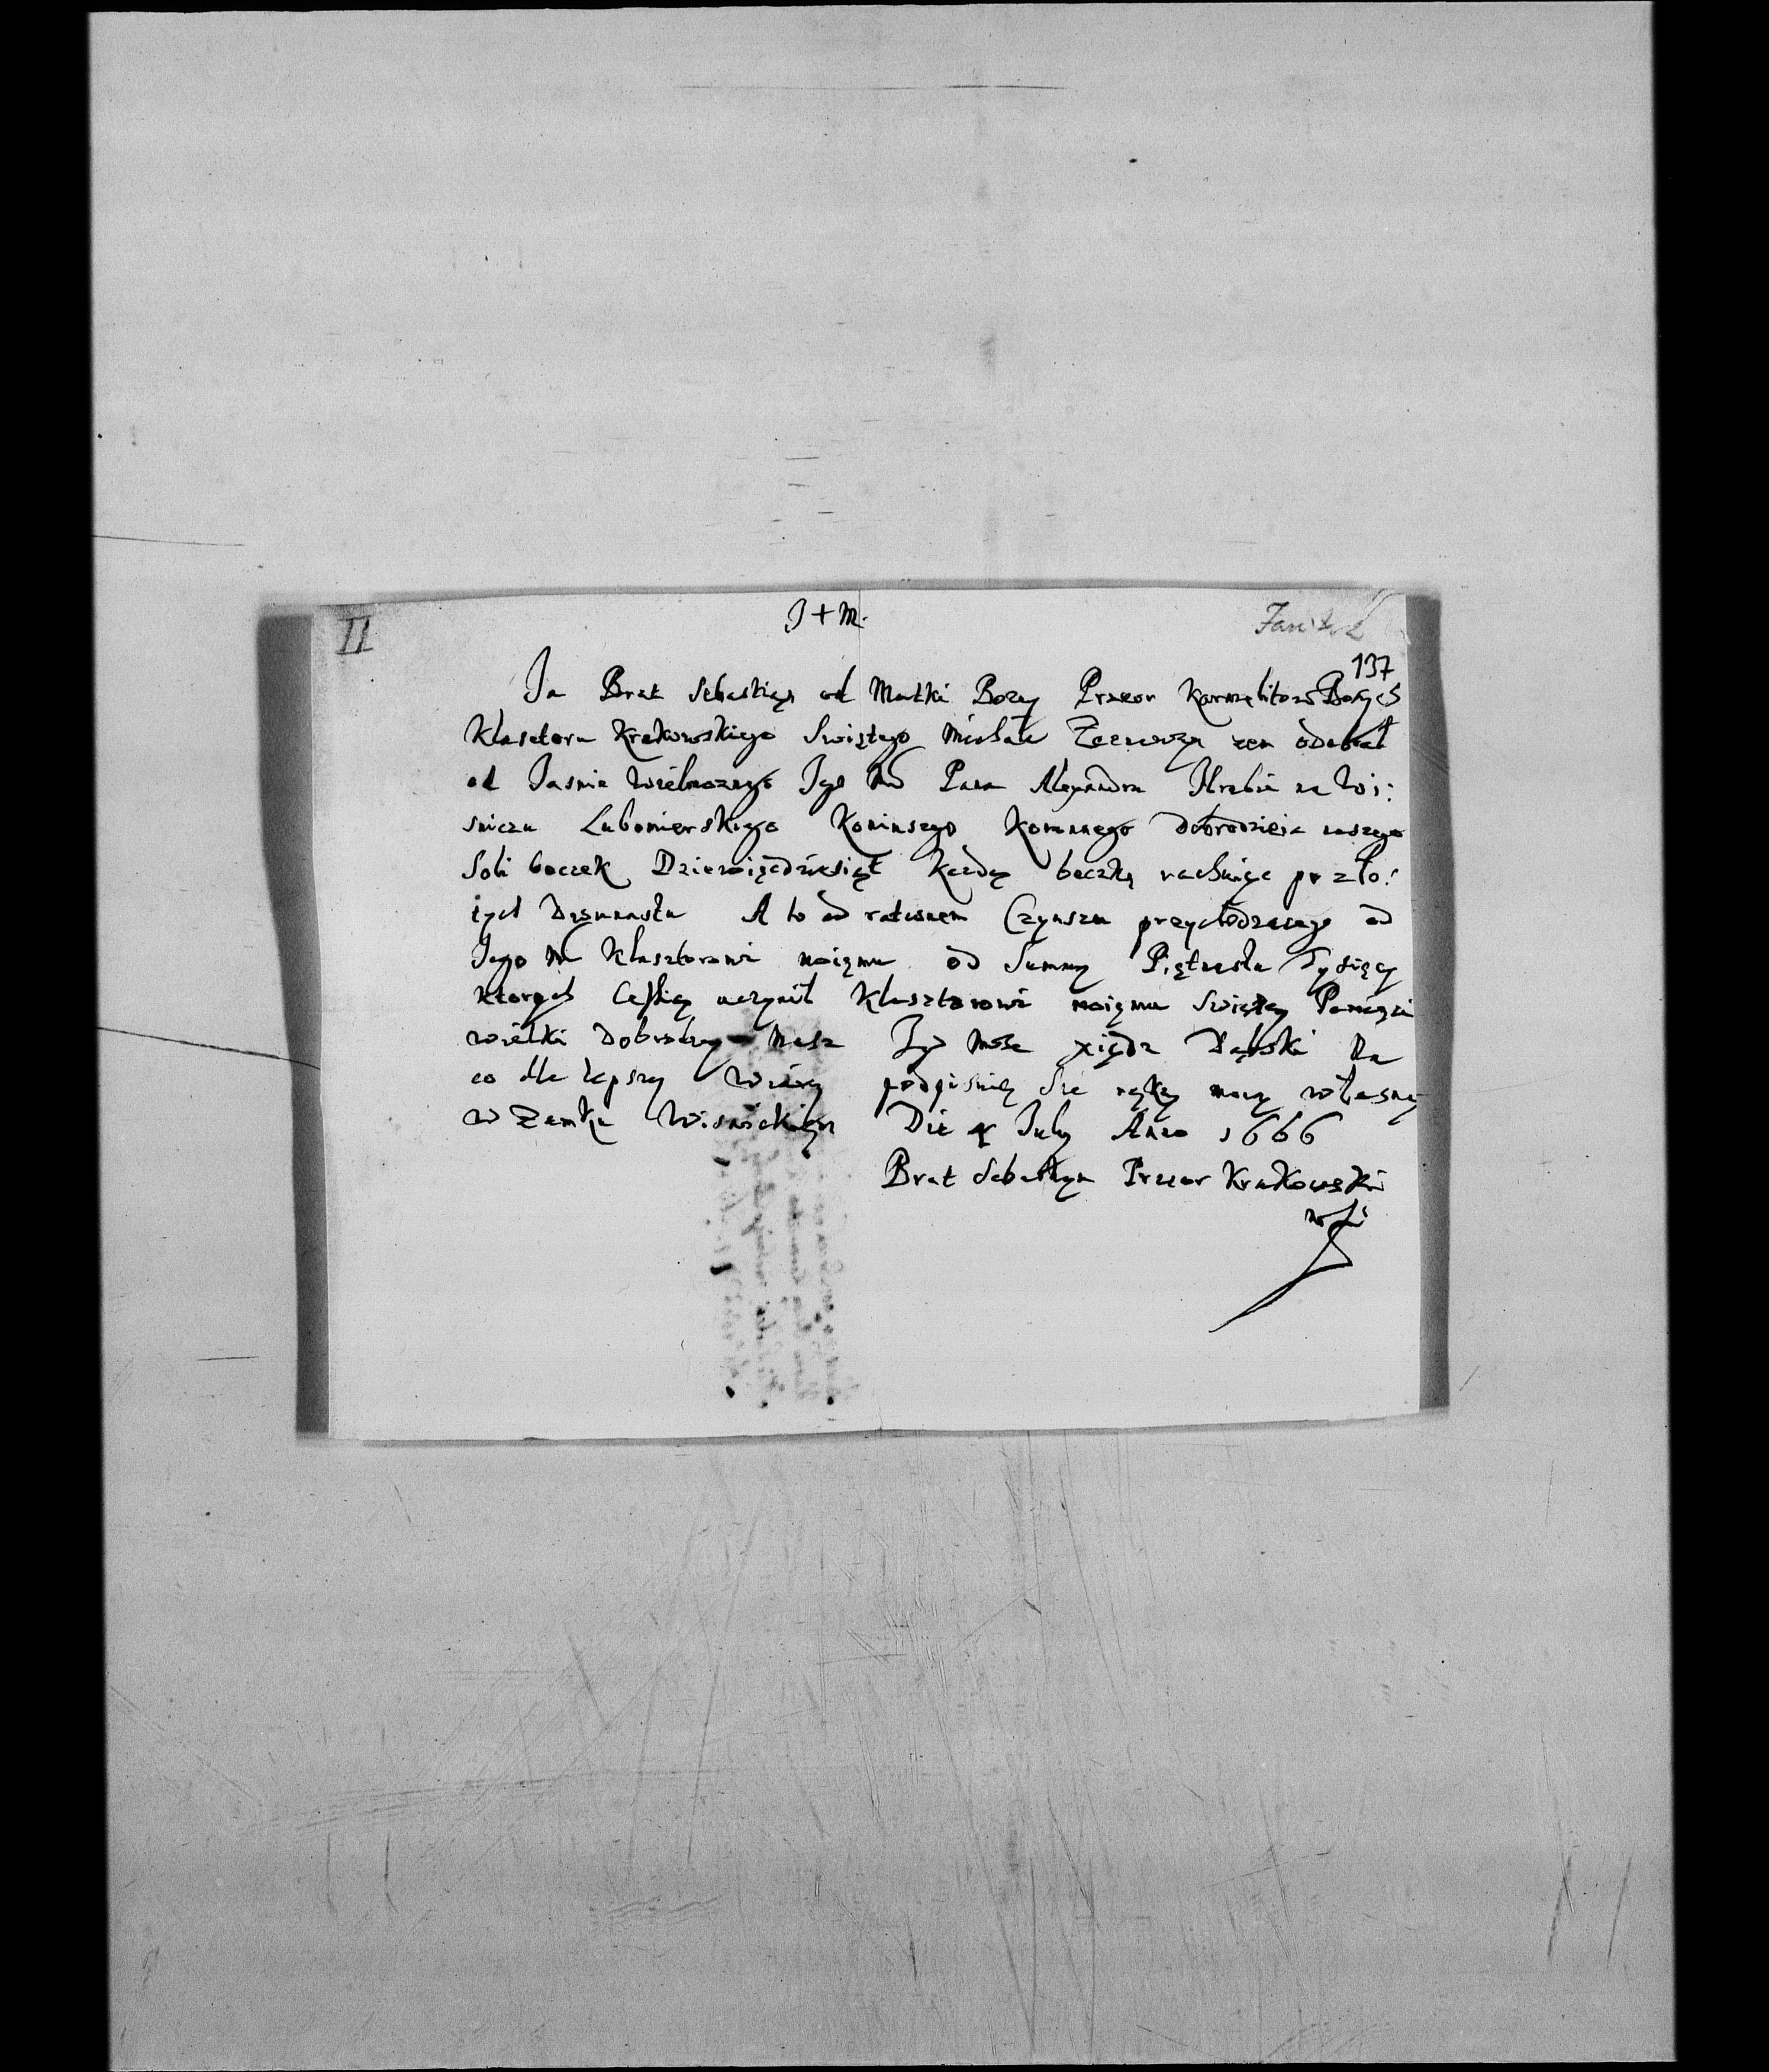 J + M.
II
137
Ja Brat Sebastian od Matki Bozey Przeor Karmelitow Bosych
Klasztoru Krakowskiego Swiętego Michała Zeznawam zem odebrał
od Jasnie Wielmoznego Jego Mci Pana Alexandra Hrabie na Wi:
sniczu Lubomierskiego Koniuszego Koronnego Dobrodzieia naszego
Soli beczek Dziewięcdziesiąt kazdą beczkę rachuiąc po zło:
tych Dwunastu A to ad rationem Czynszu przychodzacego od
Jego M Klasztorowi moięmu od Summy Piętnastu Tysięcy
ktorych Cessię uczynił Klasztorowi moięmu Swiętey Pamięci
wielki Dobrodziey Nasz Jego Mosc xiądz Dąbski Na
co dla lepszey Wiary podpisuię Sie ręką moią własną
w Zamku Wisnickiem Die 4 July Anno 1666
Brat Sebastyan Przeor Krakowski